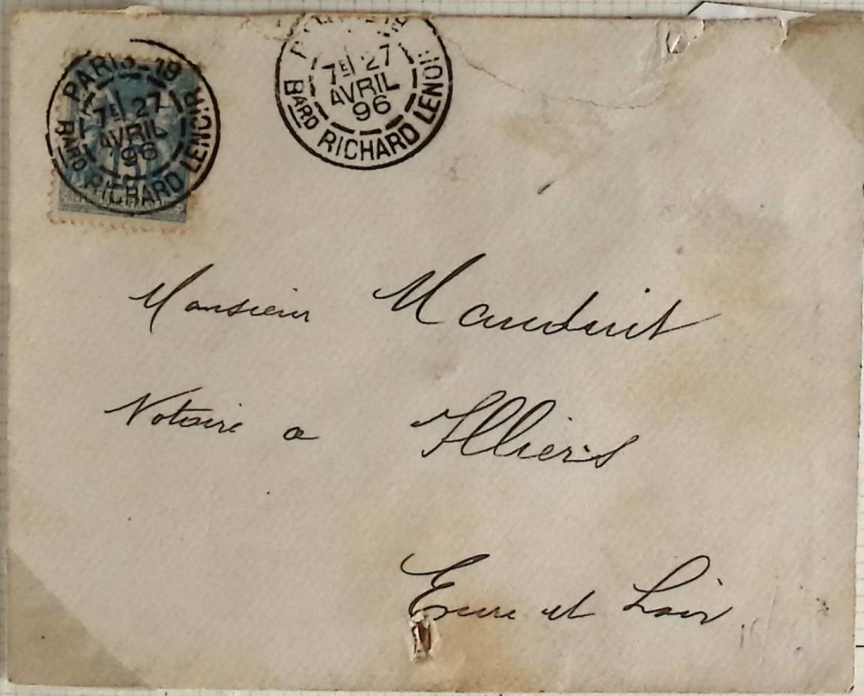 PARIS-19
7E 27
AVRIL
96
BARD RICHARD LENOIR
15
7E 27
AVRIL
96
BARD RICHARD LENOIR
Monsieur Mauduit
Notaire a Illiers
Eure et Loir